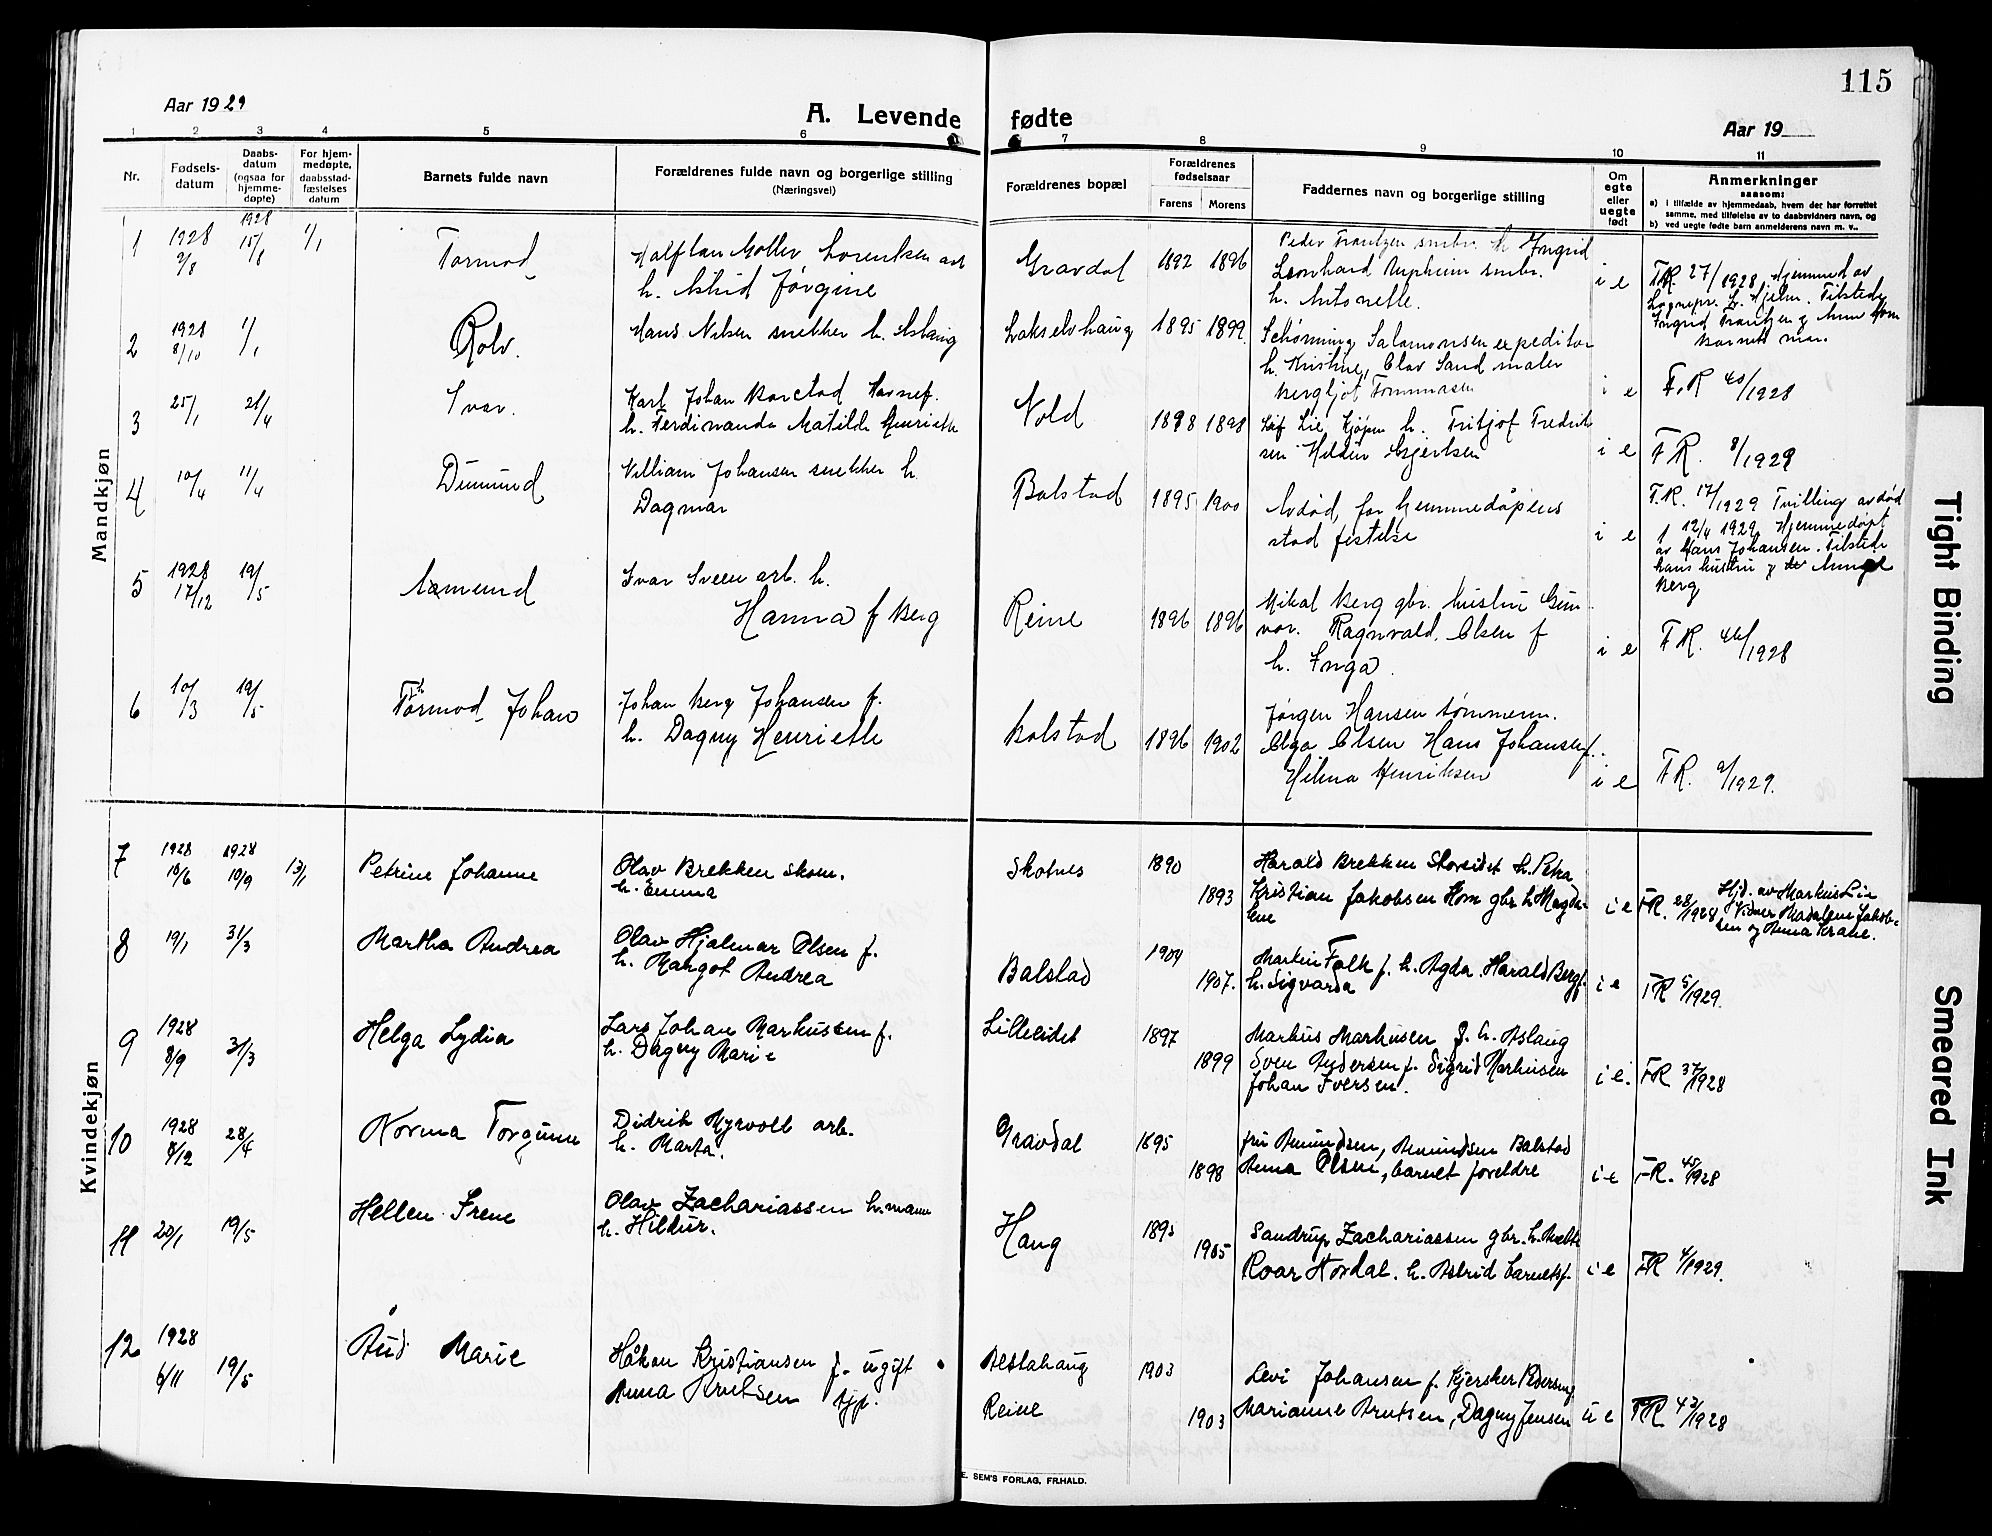 115
Aar 1929
A. Levende fødte
Aar 19
1 2 3 4 5 6 7 8 9 10 11
Nr.
Fødsels-
datum
Daabs-
datum
(ogsaa for
hjemme-
døpte)
For hjem-
medøpte,
daabsstad-
fæstelses
datum
Barnets fulde navn
Forældrenes fulde navn og borgerlige stilling
(Næringsvei)
Forældrenes bopæl
Forældrenes
fødselsaar
Farens Morens
Faddernes navn og borgerlige stilling
Om
egte
eller
uegte
født
Anmerkninger
saasom:
a) i tilfælde av hjemmedaab, hvem der har forrettet
samme, med tilføielse av to daabsvidners navn, og
b) ved uegte fødte barn anmelderens navn m. v..
Mandkjøn
1 1928 2/8 1928 15/8 1/1 Tormod
Halfdan Møller Lorentsen arb
h. Astrid Jørgine
Gravdal 1892 1896
Peder Frantzen smbr. h Ingrid
Leonhard Upheim smbr.
h. Antonette.
i e
F.R. 27/1928. Hjemmed av
Sognepr. L. Hjelm. Tilstede
Ingrid Frantzen og
barnets mor.
2 1928 8/10 1/1 Rolv.
Hans Nilsen snekker h. Aslaug
Lakselvhaug 1895 1899.
Schønning Salamonsen expeditør
h. Kristine, Olav Sand maler
Bergljot Tommasen
i e
F.R 40/1928
3 25/1 21/4 Ivar.
Karl Johan Borstad Havnef.
h. Ferdinanda Matilde Henriette
Vold 1898 1898
Leif Lie, Kjøpm h. Fritjof Fredrik
sen Hildur Gjertsen
i e
F R. 8/1929
4 10/4 11/4
Villiam Johansen snekker h.
Dagmar
Balstad 1895 1900
Avdød, før hjemmedåpens
stad festelse
i e
F.R. 17/1929 Tvilling avdød
12/4 1929. Hjemmedøpt
av Hans Johansen. Tilstede
hans hustru og
Berg
5 1928 17/12 19/5 Asmund
Ivar Sveen arb. h.
Hanna f Berg
Reine 1896 1896
Mikal Berg gbr. hustru Gun
vor. Ragnvald Olsen f
h. Inga.
i e
F R. 46/1928
6 10/3 19/5 Thormod Johan
Johan Berg Johansen f.
h. Dagny Henriette
Balstad 1896 1902
Jørgen Hansen tømmerm.
Olga Olsen Hans Johansen f.
Hilma Henriksen
i e
F R. 9/1929.
Kvindekjøn
7 1928 10/6 1928 10/9 13/1 Petrine Johanne
Olav Brekken skom.
h. Emma
Skotnes 1890 1893
Harald Brekken Storeidet h. Petra
Kristian Jakobsen Horn gbr h Magda-
lene
i e
FR. 28/1928
Hjd. av Markus Lie
Vidner Madalene Jakob-
sen og Anna Krane.
8 19/1 31/3 Martha Andrea
Olav Hjalmar Olsen f.
h. Margot Andrea
Balstad 1904 1907.
Martin Falk f. h. Agda. Harald Berg f.
h. Sigvarda
i e
FR 5/1929.
9 1928 8/9 31/3 Helga Lydia
Lars Johan Markussen f.
h. Dagny Marie
Lilleeidet 1897 1899
Markus Markusen f. h. Aslaug
Sven Andersen f. Sigrid Markusen
Johan Iversen.
i e.
FR 37/1928
10 1928 8/12 28/4 Norma Torgunn
Didrik Myrvoll arb.
h. Marta.
Gravdal 1895 1898
fru Amundsen, Amundsen Balstad
Anna Olsen, barnet foreldre
i e
FR. 45/1928
11 20/1 19/5 Hellen Irene
Olav Zachariassen h.mann
h. Hildur.
Haug 1895 1905
Sandrup Zachariassen gbr. h.
Roar Nordal. h. Astrid barnetsf.
i e
FR 4/1929.
12 1928 6/11 19/5 Aud Marie
Håkon Kristiansen f. ugift
Anna Knutsen tjp.
Alstahaug
Reine
1903 1903
Levi Johansen f. Pedersen
Marianne Knutsen, Dagny Jensen
u e
FR 43/1928
E. SEM'S FORLAG, FR.HALD.
Tight Binding
Smeared Ink